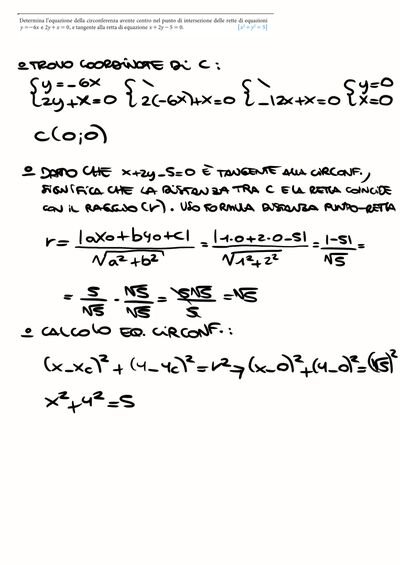 Determina l'equazione della circonferenza avente centro nel punto di intersezione delle rette di equazioni
y = −6x e 2y + x = 0, e tangente alla retta di equazione x + 2y − 5 = 0. [x² + y² = 5]
• TROVO COORDINATE DI C :
{y=-6X {\ {\ {y=0
{2y+X=0 {2(-6X)+X=0 {-12X+X=0 {X=0
C(0;0)
• DATO CHE X+2y-5=0 È TANGENTE ALLA CIRCONF.,
SIGNIFICA CHE LA DISTANZA TRA C E LA RETTA COINCIDE
CON IL RAGGIO (r). USO FORMULA DISTANZA PUNTO-RETTA
r = |aX0+by0+c| / √a²+b² = |1·0+2·0-5| / √1²+2² = |-5| / √5 =
= 5/√5 · √5/√5 = 5√5/5 = √5
• CALCOLO EQ. CIRCONF. :
(X-Xc)² + (y-yc)² = r² → (X-0)²+(y-0)²=(√5)²
X²+y²=5